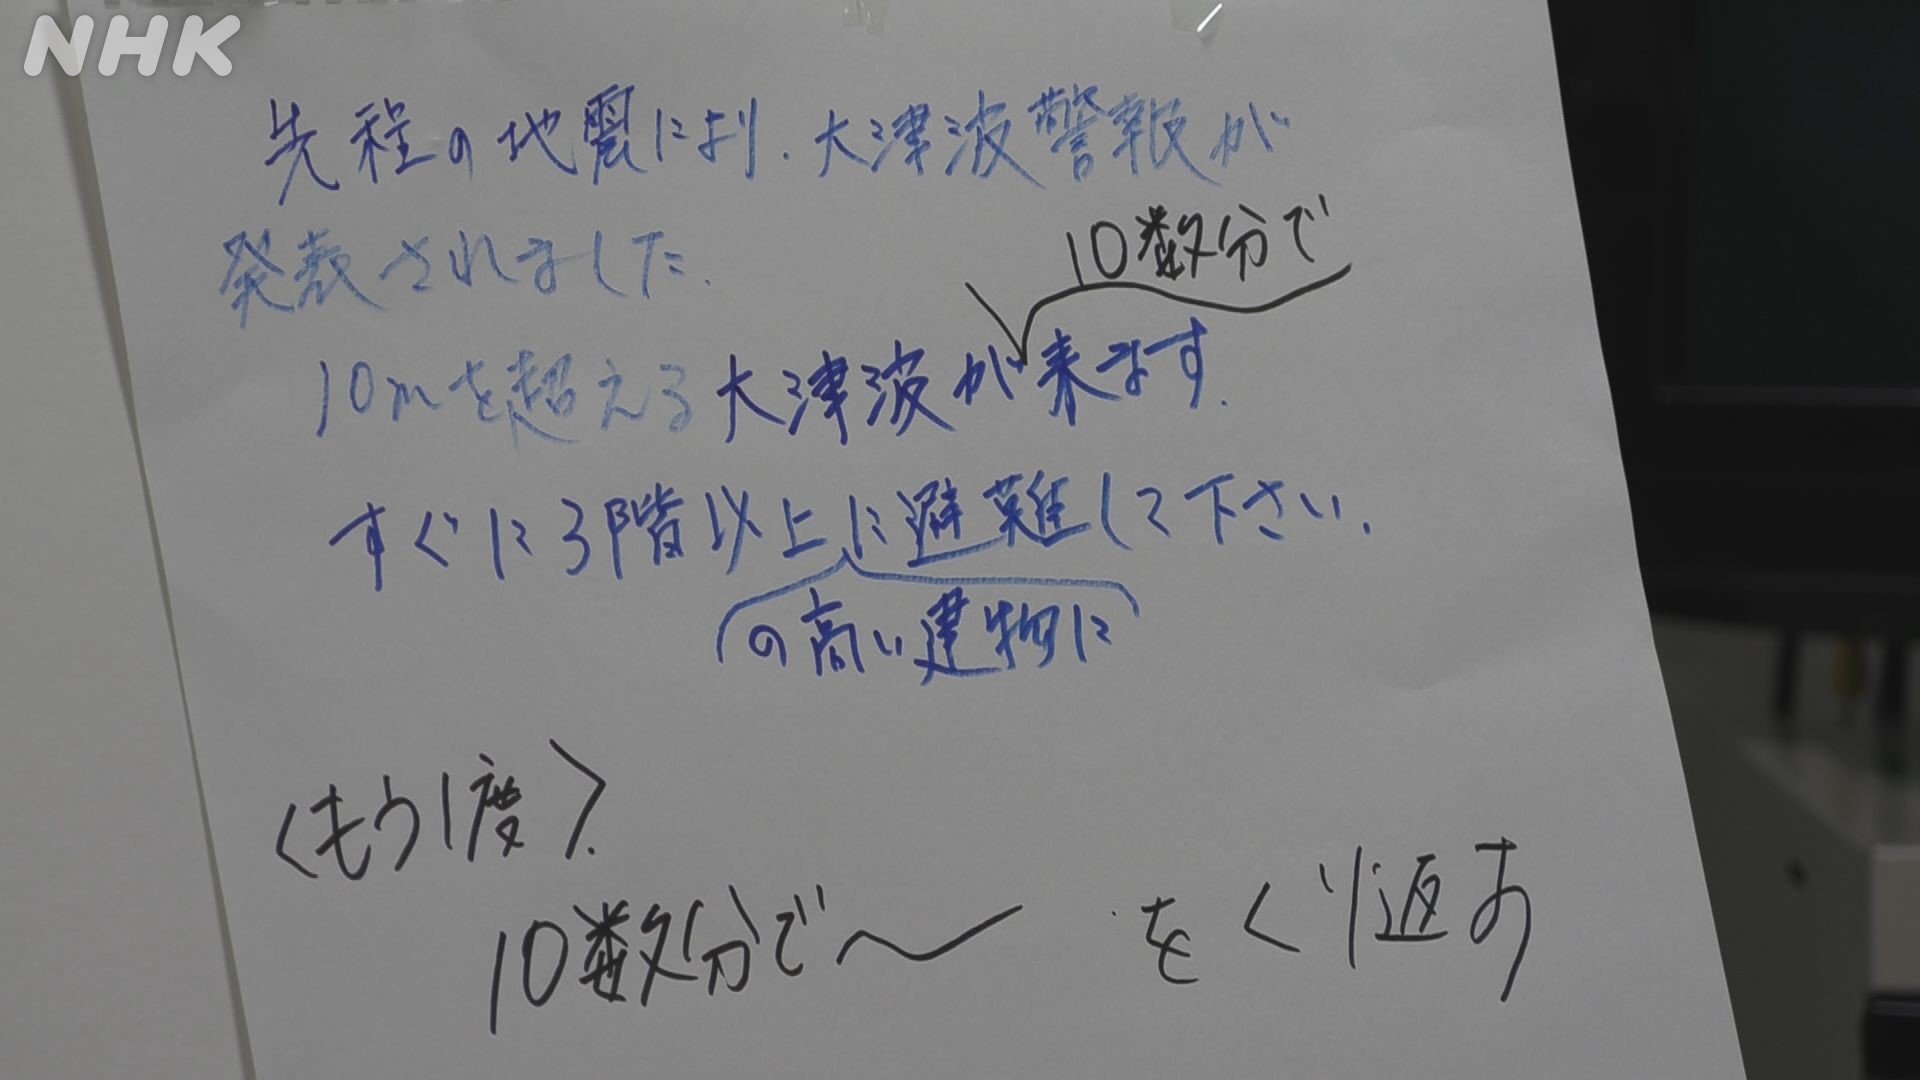 NHK
先程の地震により、大津波警報が
発表されました.
10数分で
10mを超える大津波が来ます.
すぐに3階以上に避難して下さい.
の高い建物に
〈もう1度〉.
10数分で〜 をくり返す